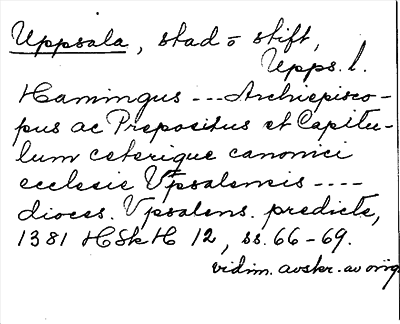 Uppsala, stad o stift,
Upps. l.
Hamingus --- Archiepisco-
pus ac Prepositus et Capitu-
lum ceterique canonici
ecclesie Vpsalensis ----
dioces. Vpsalens. predicte,
1381 HSkH 12, ss. 66-69.
vidim. avskr. av orig.